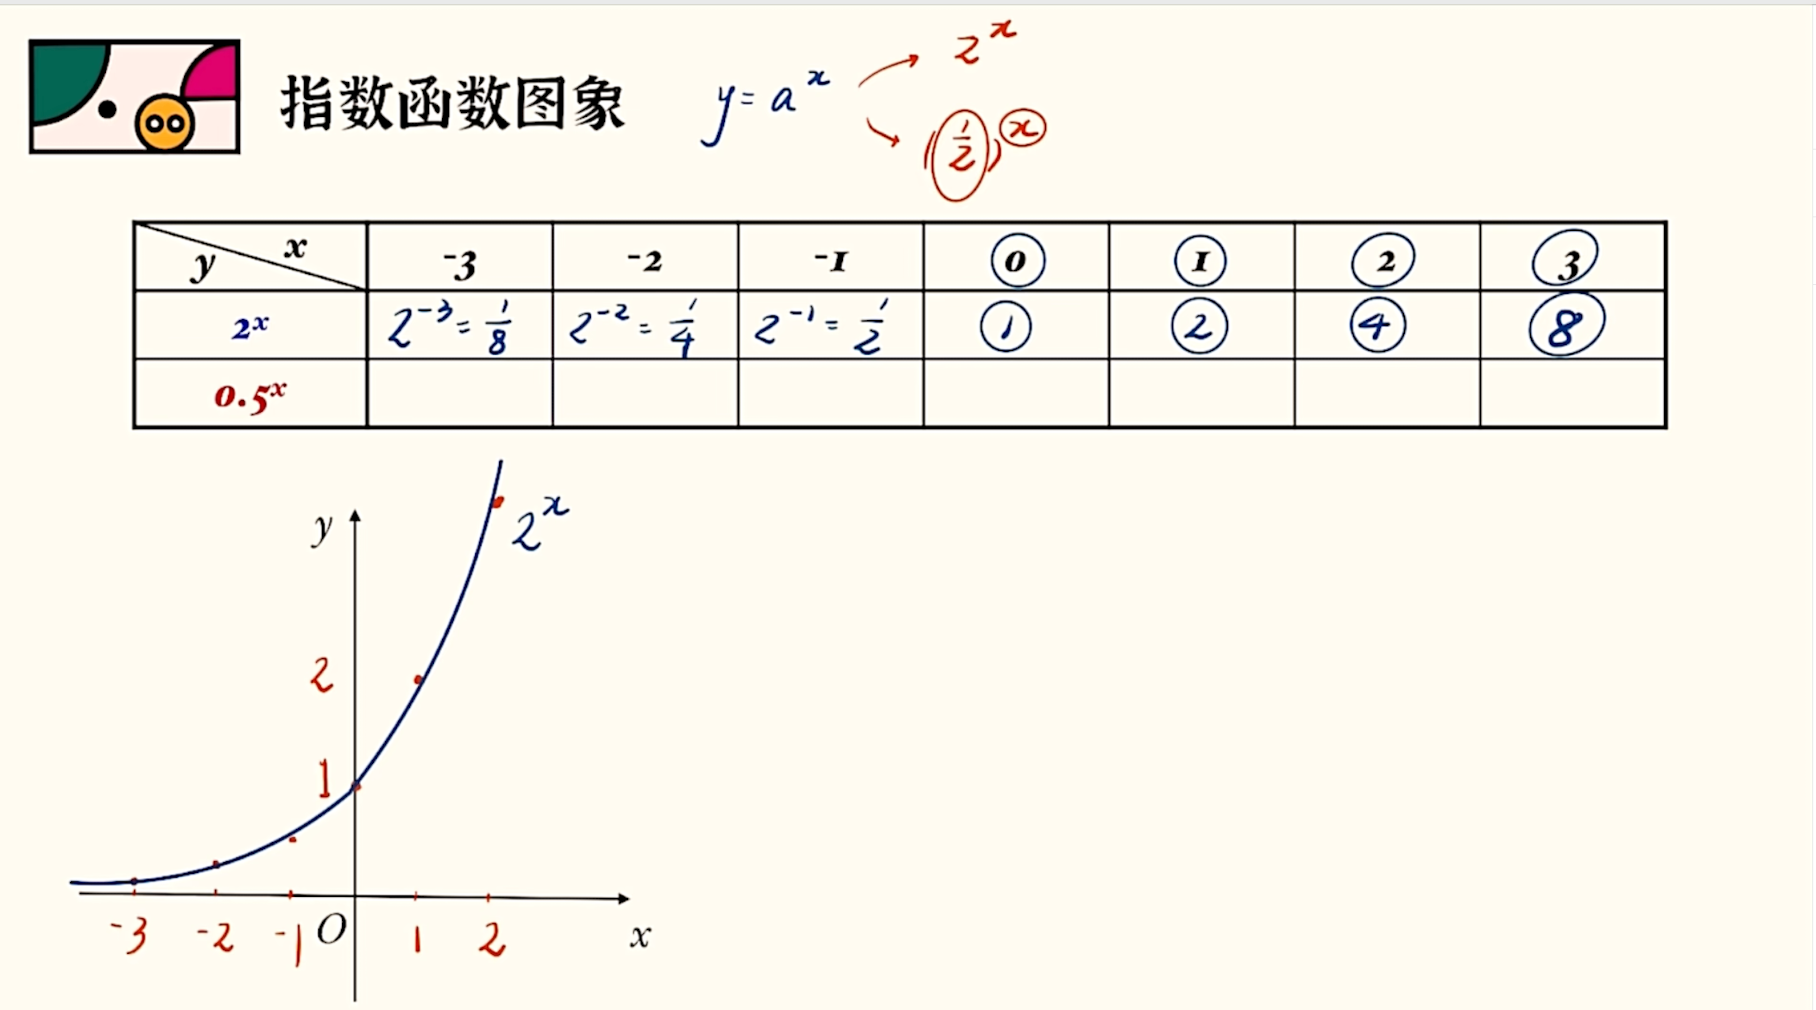 指数函数图象 y=a^x → 2^x
→ (1/2)^x
y x -3 -2 -1 0 1 2 3
2^x 2^-3=1/8 2^-2=1/4 2^-1=1/2 1 2 4 8
0.5^x
y 2^x
2
1
-3 -2 -1 O 1 2 x